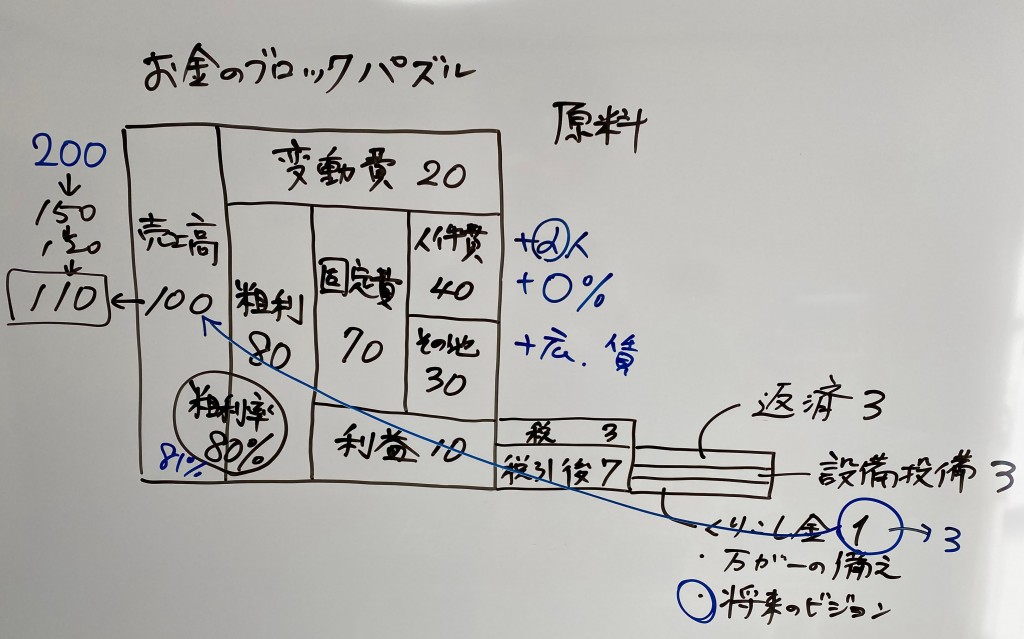 お金のブロックパズル
原料
200
↓
150
120
↓
110 ← 100
売上高
変動費 20
粗利
80
固定費
70
人件費
40
その他
30
+2人
+0%
+広. 賃
粗利率
80%
81%
利益 10
税 3
税引後 7
返済 3
設備投備 3
くりこし金 1 → 3
・万が一の備え
・将来のビジョン